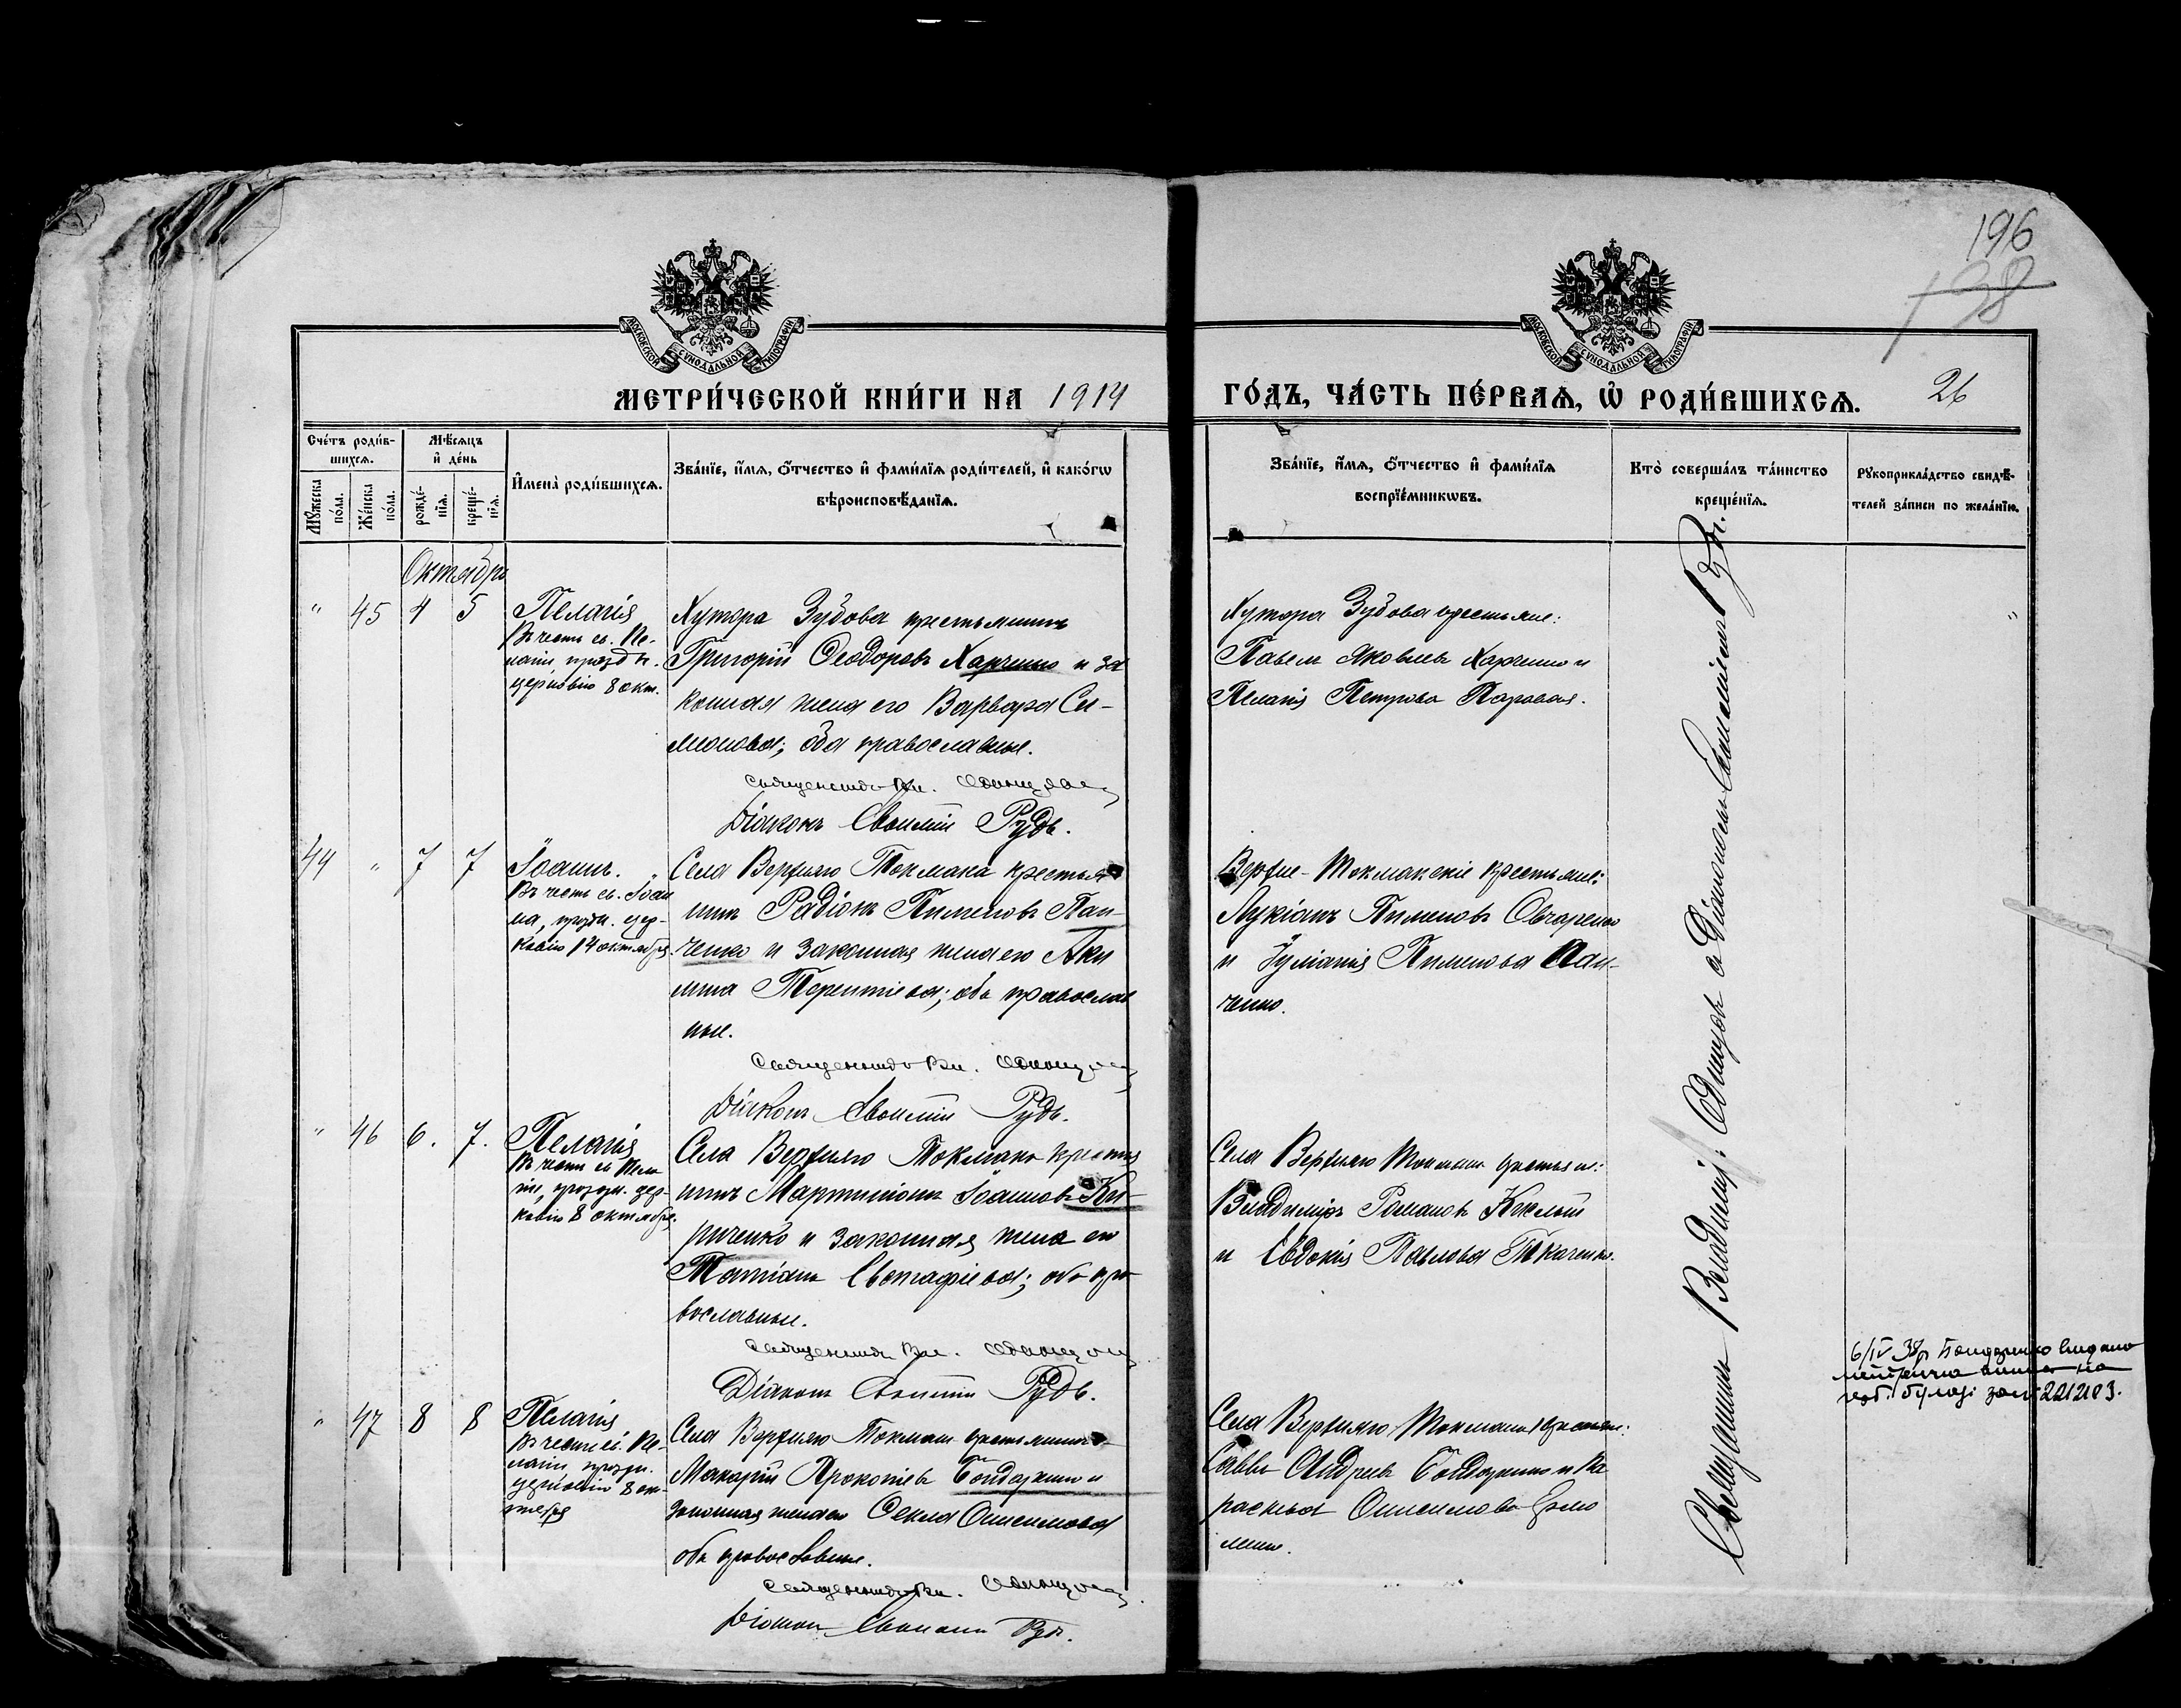 196
138
МОСКОВСКОЙ СѴНОДАЛЬНОЙ ТИПОГРАФІИ
МОСКОВСКОЙ СѴНОДАЛЬНОЙ ТИПОГРАФІИ
МЕТРИ́ЧЕСКОЙ КНИ́ГИ НА 1914
ГО́ДЪ, ЧА́СТЬ ПЕ́РВАѦ, Ѡ҆ РОДИ́ВШИХСѦ. 26
Сче́тъ роди́в-
шихсѧ.
Мꙋжеска по́ла.
Же́нска по́ла.
Мѣ́сѧцъ
и҆ де́нь
рожде́-
нїѧ.
креще́-
нїѧ.
И҆мена̀ роди́вшихсѧ.
Зва́нїе, и҆́мѧ, ѻ҆́тчество и҆ фами́лїѧ роди́телей, и҆ како́гѡ
вѣроисповѣ́данїѧ.
Зва́нїе, и҆́мѧ, ѻ҆́тчество и҆ фами́лїѧ
воспрїе́мникѡвъ.
Кто̀ соверша́лъ та́инство
креще́нїѧ.
Рꙋкоприкла́дство свидѣ́-
телей за́писи по жела́нїю.
Октябрь
" 45 4 5
Пелагія
Въ честь св. Пе-
лагіи праздн.
церковію 8 окт.
Хутора Зубова крестьянинъ
Григорій Ѳеодоровъ Харченко и за
конная жена его Варвара Си-
монова; оба православные.
Священникъ Вл. Одинцовъ
Діаконъ Евѳимій Рудь.
Хутора Зубова крестьяне:
Павелъ Яковлевъ Харченко и
Пелагія Петрова Паровая.
"
44 " 7 7
Іоаннъ.
Въ честь св. Іоан
на, праздн. цер-
ковію 14 октября.
Села Верхняго Токмака крестья
нинъ Радіонъ Пименовъ Пан-
ченко и законная жена его Аки
лина Терентіева; оба православ
ные.
Священникъ Вл. Одинцовъ
Діаконъ Евѳимій Рудь.
Верхне-Токмакскіе крестьяне:
Лукіанъ Пименовъ Овчаренко
и Іуліанія Пименова Пан-
ченко.
" 46 6. 7.
Пелагія
Въ честь св. Пела
гіи, праздн. цер-
ковію 8 октября.
Села Верхняго Токмака крестья
нинъ Мартиніанъ Іоанновъ Ки-
риченко и законная жена его
Татіана Евстафіева; оба пра-
вославные.
Священникъ Вл. Одинцовъ
Діаконъ Евѳимій Рудь.
Села Верхняго Токмака крестьяне:
Владиміръ Романовъ
и Евдокія Павлова Ткаченко.
" 47 8 8
Пелагія
Въ честь св. Пе-
лагіи праздн.
церковію 8 ок-
тября
Села Верхняго Токмака крестьянинъ
Макарій Прокопіевъ Бондаренко и
законная жена его Ѳекла Онисимова
оба православные.
Священникъ Вл. Одинцовъ
Діаконъ Евѳимій Рудь.
Села Верхняго Токмака крестьяне:
Савва Андреевъ Бондаренко и Па
раскева Онисимова Ермо
ленко.
Священникъ Владиміръ Одинцовъ съ Діакономъ Рудь.
6/IV 38р Бондаренко видано
221203.